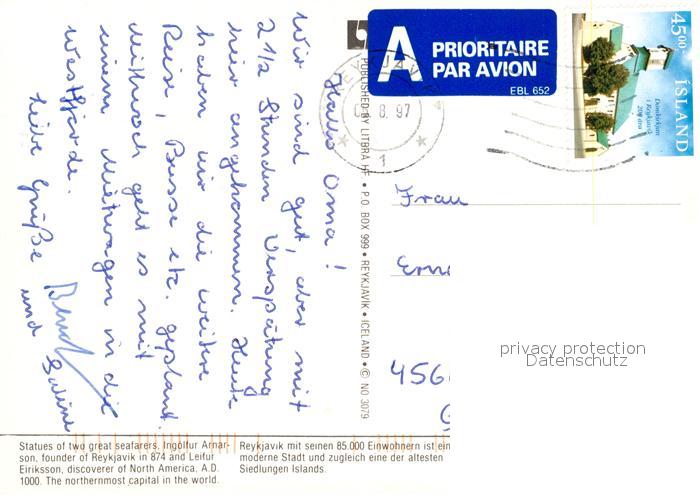 Hallo Oma!
Wir sind gut, aber mit
2 1/2 Stunden Verspätung
hier angekommen. Heute
haben wir die weitere
Reise, Busse etc. geplant.
Mittwoch geht es mit
einem Mietwagen in die
Westfjorde.
Liebe Grüße
und Sabine
PUBLISHED BY LITBRA HF. • P.O. BOX 999 • REYKJAVÍK • ICELAND • © NO 3079
A PRIORITAIRE
PAR AVION
EBL 652
8. 97
1
45 00
ÍSLAND
Dómkirkjan
í Reykjavík
200 ára
Frau
Ern
456
privacy protection
Datenschutz
Statues of two great seafarers. Ingolfur Arnar-
son, founder of Reykjavik in 874 and Leifur
Eiriksson, discoverer of North America, A.D.
1000. The northernmost capital in the world.
Reykjavik mit seinen 85.000 Einwohnern ist ein
moderne Stadt und zugleich eine der ältesten
Siedlungen Islands.